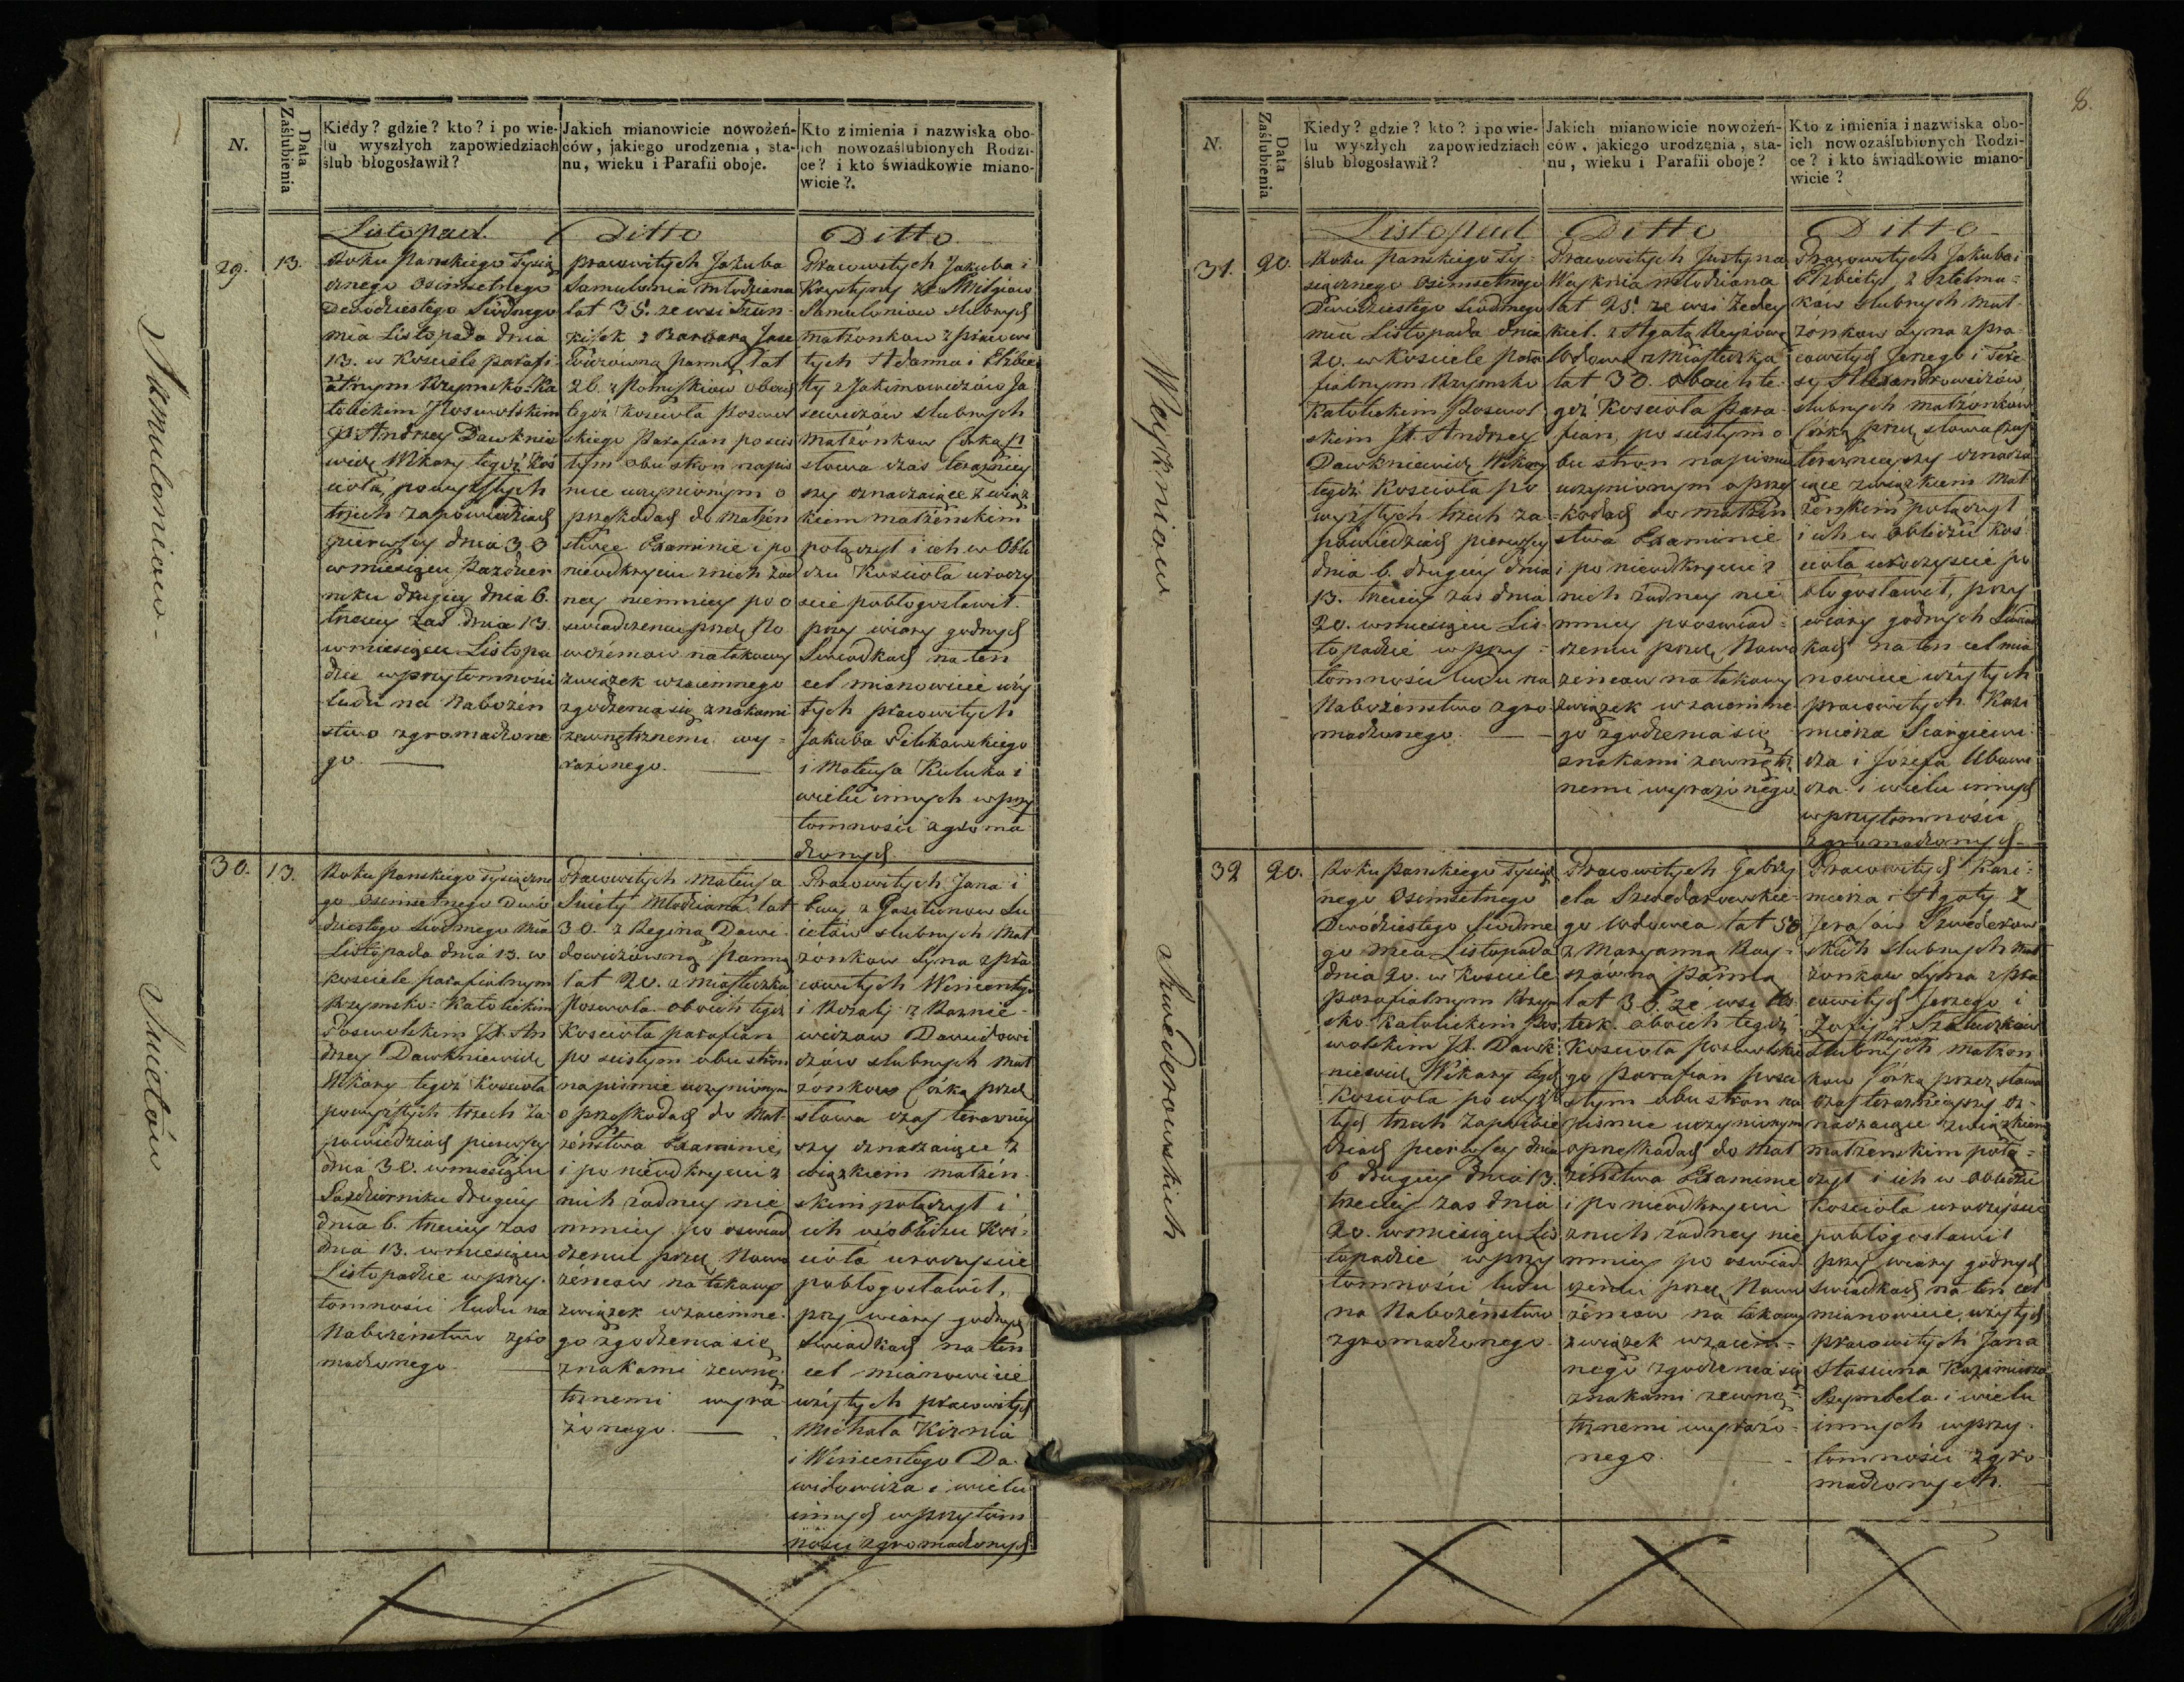 N.
Data Zaślubienia
Kiedy? gdzie? kto? i po wie-
lu wyszłych zapowiedziach
ślub błogosławił?
Jakich mianowicie nowożeń-
ców, jakiego urodzenia, sta-
nu, wieku i Parafii oboje.
Kto z imienia i nazwiska obo-
ich nowozaślubionych Rodzi-
ce? i kto świadkowie miano-
wicie?.
Samuloniow
Listopad.
Ditto
Ditto.
29.
13.
Roku Panskiego Tysią
cznego Osimsetnego
Dwódziestego Siódmego
mća Listopada dnia
13. w Kosciele parafi
alnym Rzymsko-Ka
tolickim Poswolskim
JX Andrzey Dawknie
wicz Wikary tegóż Koś
cioła, po wyszłych
trzech zapowiedziach
pierwszey dnia 30
w miesiącu Pazdzier
niku drugiey dnia 6.
trzeciey zaś dnia 13.
w miesiącu Listopa
dzie w przytomności
ludu na Nabożeń
stwo zgromadzone
go.
pracowitych Jakuba
Samulonia młodziana
lat 35. ze wsi Szun-
kiszek z Barbarą Jase
wiczówną Panną lat
26. z obojch
tegoż Kościoła Poswol
skiego Parafian po scis
łym obu stron napis
mie uczynionym o
przeszkodach do Małżeń
stwa Examinie i po
nieodkryciu z nich żad
ney niemniey po o
swiadczeniu przez No
wożeńcow na takowy
związek wzaiemnego
zgodzenia się znakami
zewnętrznemi wy=
rażonego.
Pracowitych Jakuba i
Krystyny ze
Samuloniow slubnych
małżonkow z pracowi
tych Adama i Elżbie
ty z Jakimowiczów Ja
sewiczów slubnych
Małżónkow Corką pr
słowa czas teraźniey
szy oznaczaiące związ
kiem małżeńskim
połączył i ich w Obli
czu Kościoła uroczy
scie pobłogosławił.
przy wiary godnych
Swiadkach na ten
cel mianowicie uży
tych pracowitych
Jakuba
i Mateusza Kuluka i
wielu innych w przy
tomności zgroma
dzonych
Suietów
30.
13.
Roku Panskiego Tysiączne
go Osimsetnego Dwó
dziestego Siodmego mća
Listopada dnia 13. w
kosciele parafialnym
Rzymsko=Katolickim
Poswolskim JX. An
drzey Dawkniewicz
Wikary tegóż Kościoła
po wyszłych trzech za
powiedziach pierwszey
dnia 30. w miesiącu
Pazdzierniku drugiey
dnia 6. trzeciey zaś
dnia 13. w miesiącu
Listopadzie w przy-
tomności ludu na
Nabożeństwo zgro
madzonego.
Pracowitych Mateusza
Suiety Młodziana lat
30. z Reginą Dawi-
dowiczówną Panną
lat 20. z miasteczka
Poswola oboich tegóż
Kościoła parafian
po scisłym obu stron
napismie uczynionym
o przeszkodach do Mał-
żeństwa Examinie,
i po nieodkryciu z
nich żadney nie
mniey po oswiad
czeniu przez Nowo
żeńcow na takowy
związek wzaiemne-
go zgodzenia się
znakami zewnę
trznemi wyra
żonego.
Pracowitych Jana i
Ewy z Gasiunow Su
ietów slubnych Mał
żónkow Syna z pra
cowitych Wincentego
i Rozalij z
wiczow Dawidowi
czów slubnych mał
żónkow Córką przez
słowa czas teraźniey
szy oznaczaiące z
wiązkiem małżeń-
skim połączył i
ich w obliczu Koś-
cioła uroczyscie
pobłogosławił,
przy wiary godnych
Swiadkach na ten
cel mianowicie
użytych pracowitych
Michała Kirnia
i Wincentego Da-
widowicza i wielu
innych w przytom
ności zgromadzonych
8.
N.
Data Zaślubienia
Kiedy? gdzie? kto? i po wie-
lu wyszłych zapowiedziach
ślub błogosławił?
Jakich mianowicie nowożeń-
ców, jakiego urodzenia, sta-
nu, wieku i Parafii oboje?
Kto z imienia i nazwiska obo-
ich nowozaślubionych Rodzi-
ce? i kto świadkowie miano-
wicie?
Wayzniow
Listopad
Ditto
Ditto
31.
20.
Roku panskiego Ty-
sącznego Osimsetnego
Dwódziestego Siodmego
mća Listopada dnia
20. w Kosciele para
fialnym Rzymsko
Katolickim Poswol
skim JX. Andrzey
Dawkniewicz Wikary
tegóż Kościoła po
wyszłych trzech za
powiedziach pierwszey
dnia 6. drugiey dnia
13. trzeciey zaś dnia
20. w miesiącu Lis-
topadzie w przy=
tomności ludu na
Nabożeństwo zgro
madzonego.
Pracowitych Justyna
młodziana
lat 25. ze wsi
z Agatą
Wdową z Miasteczka
lat 30. oboich te-
goż Kościoła Para-
fian, po scisłym o
bu stron napismie
uczynionym o przes
zkodach do małżeń
stwa Examinie
i po nieodkryciu z
nich żadney nie
mniey po oswiad=
czeniu przez Nowo
żeńcow na takowy
związek wzaiemne
go zgodzenia się
znakami zewnętrz
nemi wyrażonego
Pracowitych Jakuba i
Elżbiety z
slubnych mał-
żónkow Syna z pra-
cowitych Jerzego i Tere
sy Alexandrowiczów
slubnych małżonkow
Córką przez słowa czas
teraznieyszy oznacza
iące związkiem mał
żeńskim połączył
i ich w obliczu Koś
cioła uroczyscie po
błogosławił, przy
wiary godnych Swiad
kach na ten cel mia
nowicie użytych
pracowitych Kazi
mierza
i Józefa
i wielu innych
w przytomności
zgromadzonych
Szwederowskich
32
20.
Roku Panskiego Tysiącz
nego Osimsetnego
Dwódziestego Siodme
go mća Listopada
dnia 20. w kosciele
parafialnym Rzym
sko-Katolickim Pos
wolskim JX. Dawk
niewicz Wikary tegoż
Kościoła po wysz
łych trzech Zapowie
dziach pierwszey dnia
6 drugiey dnia 13.
trzeciey zaś dnia
20. w miesiącu Lis
topadzie w przy
tomności ludu
na Nabożeństwo
zgromadzonego.
Pracowitych Gabry
ela Szwederowskie-
go Wdowca lat 50
z Maryanną
Panną
lat 30 ze wsi
oboich tegóż
Kościoła poswolskie
go Parafian po sci
słym obu stron na
pismie uczynionym
o przeszkodach do mał
żeństwa Examinie
i po nieodkryciu
z nich żadney nie
mniey po oswiad
czeniu przez Nowo
żeńcow na takowy
związek wzaiem=
nego zgodzenia się
znakami zewnę=
trznemi wyrażo-
nego.
Pracowitych Kazi-
mierza i Agaty z
Szwederow
skich slubnych mał
żonkow Syna z pra
cowitych Jerzego i
Zofij z
slubnych małżon
kow Córką przez słowa
czas teraznieyszy oz-
naczaiące związkiem
małżenskim połą=
czył i ich w obliczu
Kościoła uroczyscie
pobłogosławił
przy wiary godnych
swiadkach na ten cel
mianowicie użytych
pracowitych Jana
Stasiuna Kazimierza
i wielu
innych w przy-
tomności zgro
madzonych.